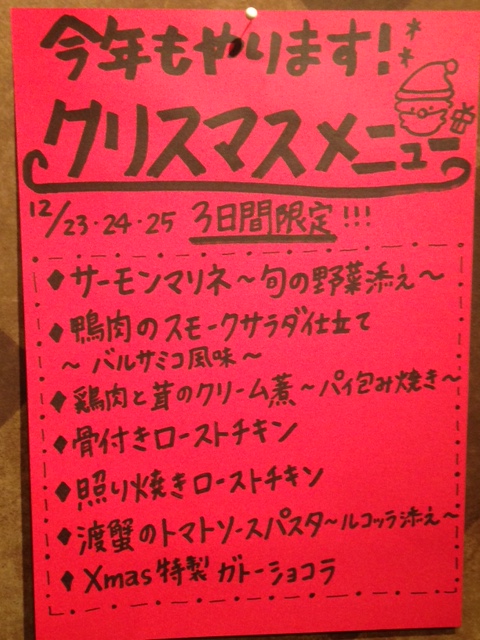 今年もやります!
クリスマスメニュー
12/23・24・25 3日間限定!!!
♦サーモンマリネ～旬の野菜添え～
♦鴨肉のスモークサラダ仕立て
～バルサミコ風味～
♦鶏肉と茸のクリーム煮～パイ包み焼き～
♦骨付きローストチキン
♦照り焼きローストチキン
♦渡蟹のトマトソースパスタ～ルコッラ添え～
♦Xmas特製 ガトーショコラ